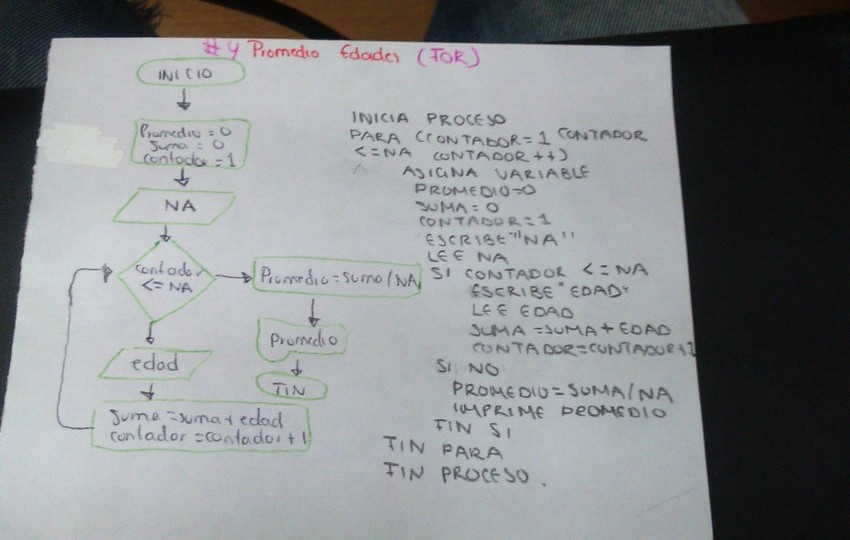 #4 Promedio Edades (FOR)
INICIO
Promedio = 0
Suma = 0
Contador = 1
NA
contador
<= NA
Promedio = Suma / NA
Promedio
FIN
edad
Suma = suma + edad
contador = contador + 1
INICIA PROCESO
PARA (CONTADOR = 1 CONTADOR
<= NA CONTADOR ++)
ASIGNA VARIABLE
PROMEDIO=0
SUMA = 0
CONTADOR = 1
ESCRIBE "NA"
LEE NA
SI CONTADOR <= NA
ESCRIBE "EDAD"
LEE EDAD
SUMA = SUMA + EDAD
CONTADOR = CONTADOR + 1
SI NO
PROMEDIO = SUMA / NA
IMPRIME PROMEDIO
FIN SI
FIN PARA
FIN PROCESO.